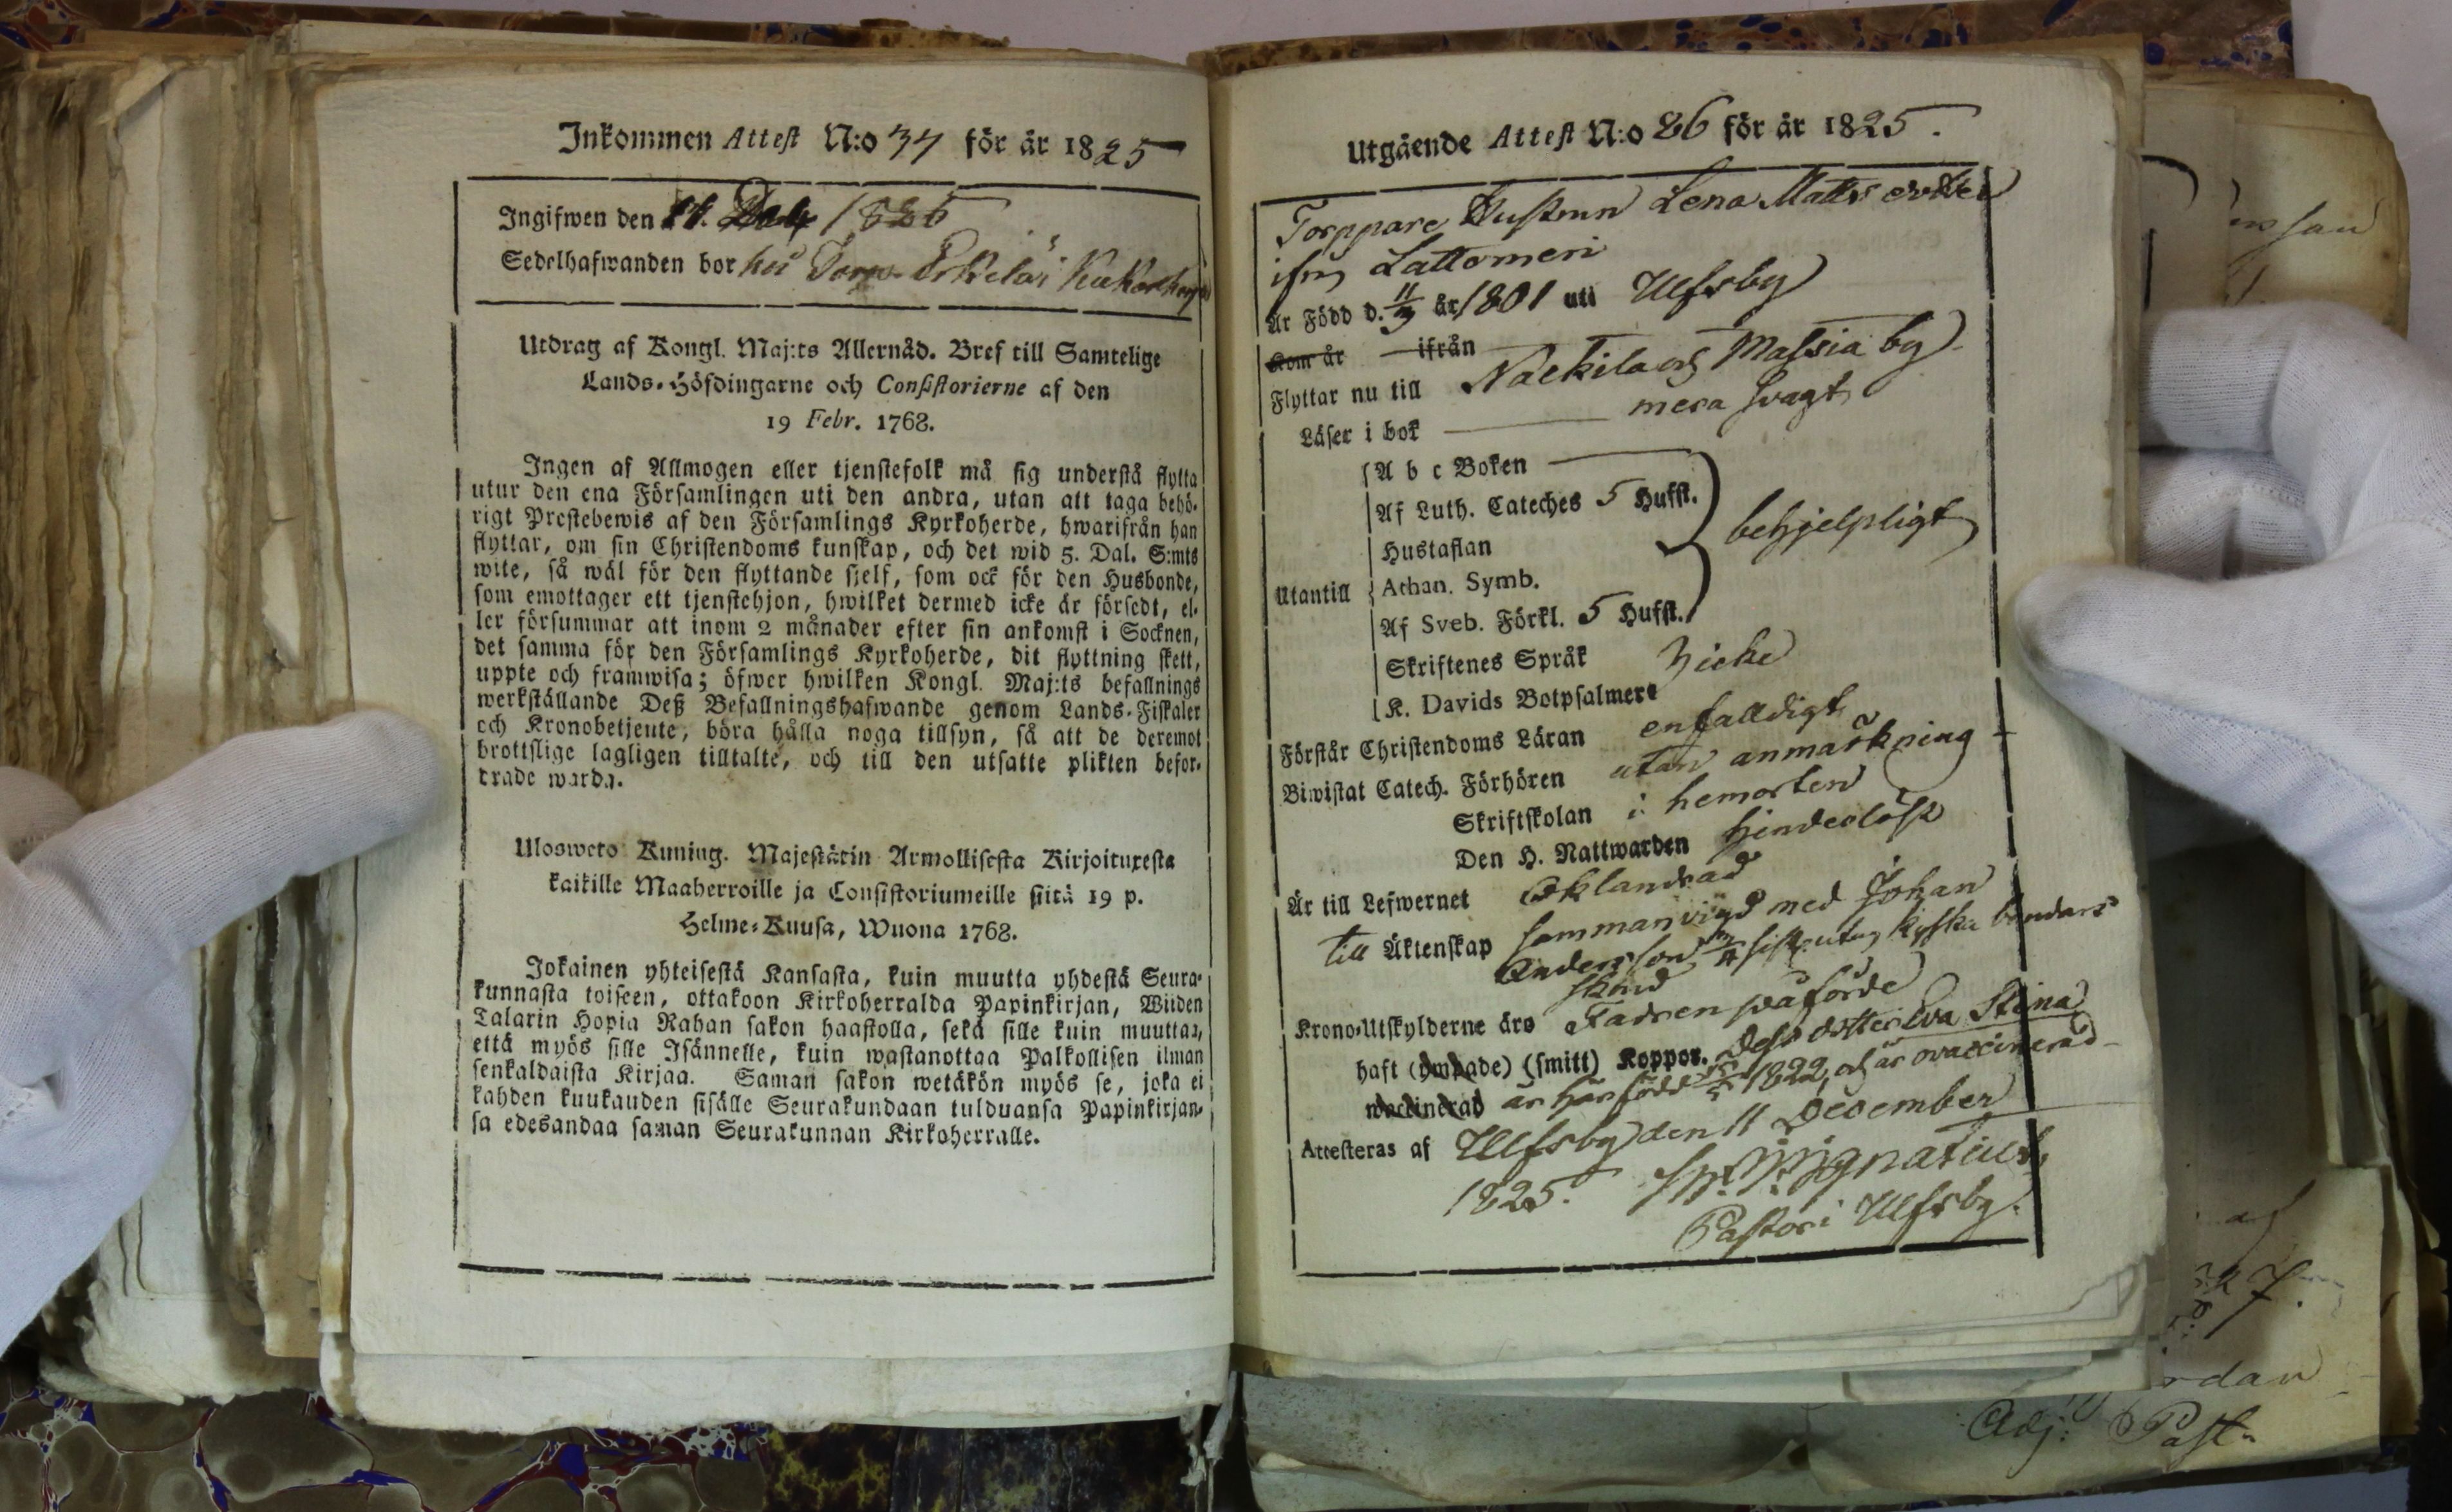 Inkommen Attest N:o 34 för år 1825
Ingifwen den 1826
Sedelhafwanden bor hos
Utdrag af Kongl. Maj:ts Allernåd. Bref till Samtelige
Lands-Höfdingarne och Consistorierne af den
19 Febr. 1768.
Ingen af Allmogen eller tjenstefolk må sig understå flytta
utur den ena Församlingen uti den andra, utan att taga behö-
rigt Prestebewis af den Församlings Kyrkoherde, hwarifrån han
flyttar, om sin Christendoms kunskap, och det wid 5. Dal. S:mts
wite, så wäl för den flyttande sjelf, som ock för den Husbonde,
som emottager ett tjenstehjon, hwilket dermed icke är försedt, el-
ler försummar att inom 2 månader efter sin ankomst i Socknen,
det samma för den Församlings Kyrkoherde, dit flyttning skett,
uppte och framwisa; öfwer hwilken Kongl. Maj:ts befallnings
werkställande Deß Befallningshafwande genom Lands-Fiskaler
och Kronobetjente, böra hålla noga tillsyn, så att de deremot
brottslige lagligen tilltalte, och till den utsatte plikten befor-
drade warda.
Ulosweto Kuning. Majestätin Armollisesta Kirjoituxesta
kaikille Maaherroille ja Consistoriumeille siitä 19 p.
Helme-Kuusa, Wuona 1768.
Jokainen yhteisestä Kansasta, kuin muutta yhdestä Seura-
kunnasta toiseen, ottakoon Kirkoherralda Papinkirjan, Wiiden
Talarin Hopia Rahan sakon haastolla, sekä sille kuin muuttaa,
että myös sille Isännelle, kuin wastanottaa Palkollisen ilman
senkaldaista Kirjaa. Saman sakon wetäkön myös se, joka ei
kahden kuukauden sisälle Seurakundaan tulduansa Papinkirjan-
sa edesandaa saman Seurakunnan Kirkoherralle.
Utgående Attest N:o 86 för år 1825.
Torppare Hustrun Lena Matts dotter
ifrån Lattomeri
Är Född d. 11/3 år 1801 uti Ulfsby
Kom år ifrån
Flyttar nu till Nackila och Massia by
Läser i bok mera svagt
A b c Boken
Af Luth. Cateches 5 Hufst.
Hustaflan
behjelpligt
Utantill Athan. Symb.
Af Sveb. Förkl. 5 Hufst.
Skriftenes Språk Nicke
K. Davids Botpsalmer
Förstår Christendoms Läran enfalldigt
Biwistat Catech. Förhören utan anmärkning
Skriftskolan i hemorten
Den H. Nattwarden hinderlöst
Är till Lefwernet Oklandrad
till Äktenskap sammanvigd med Johan
Andersson
Krono-Utskylderne äro Fadren påförde
haft (owpade) (smitt) Koppor. Dess dotter Eva Stina
waccinerad är här född 1822, och är ovaccinerad
Attesteras af Ulfsby den 11 December
1825. Ignatius,
Pastor i Ulfsby.
Adj: Past.